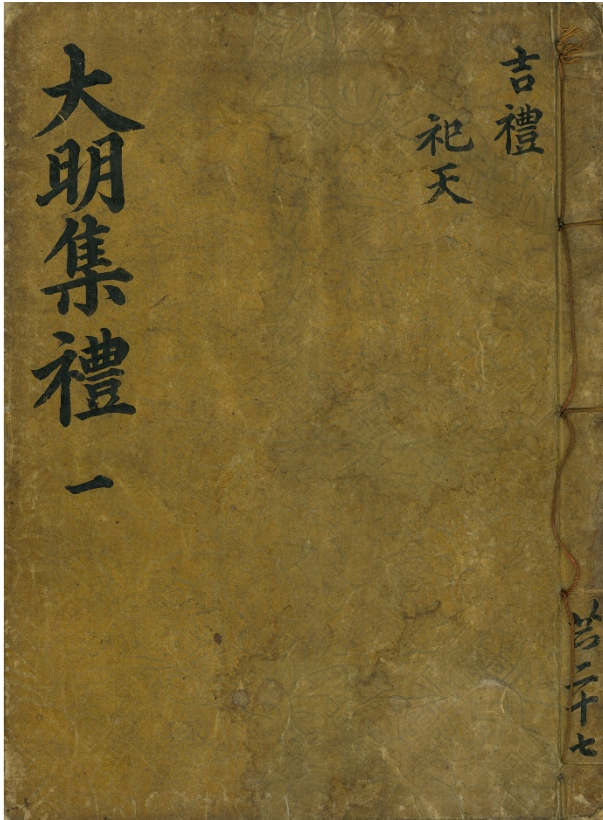 吉禮
祀天
大明集禮 一
共二十七